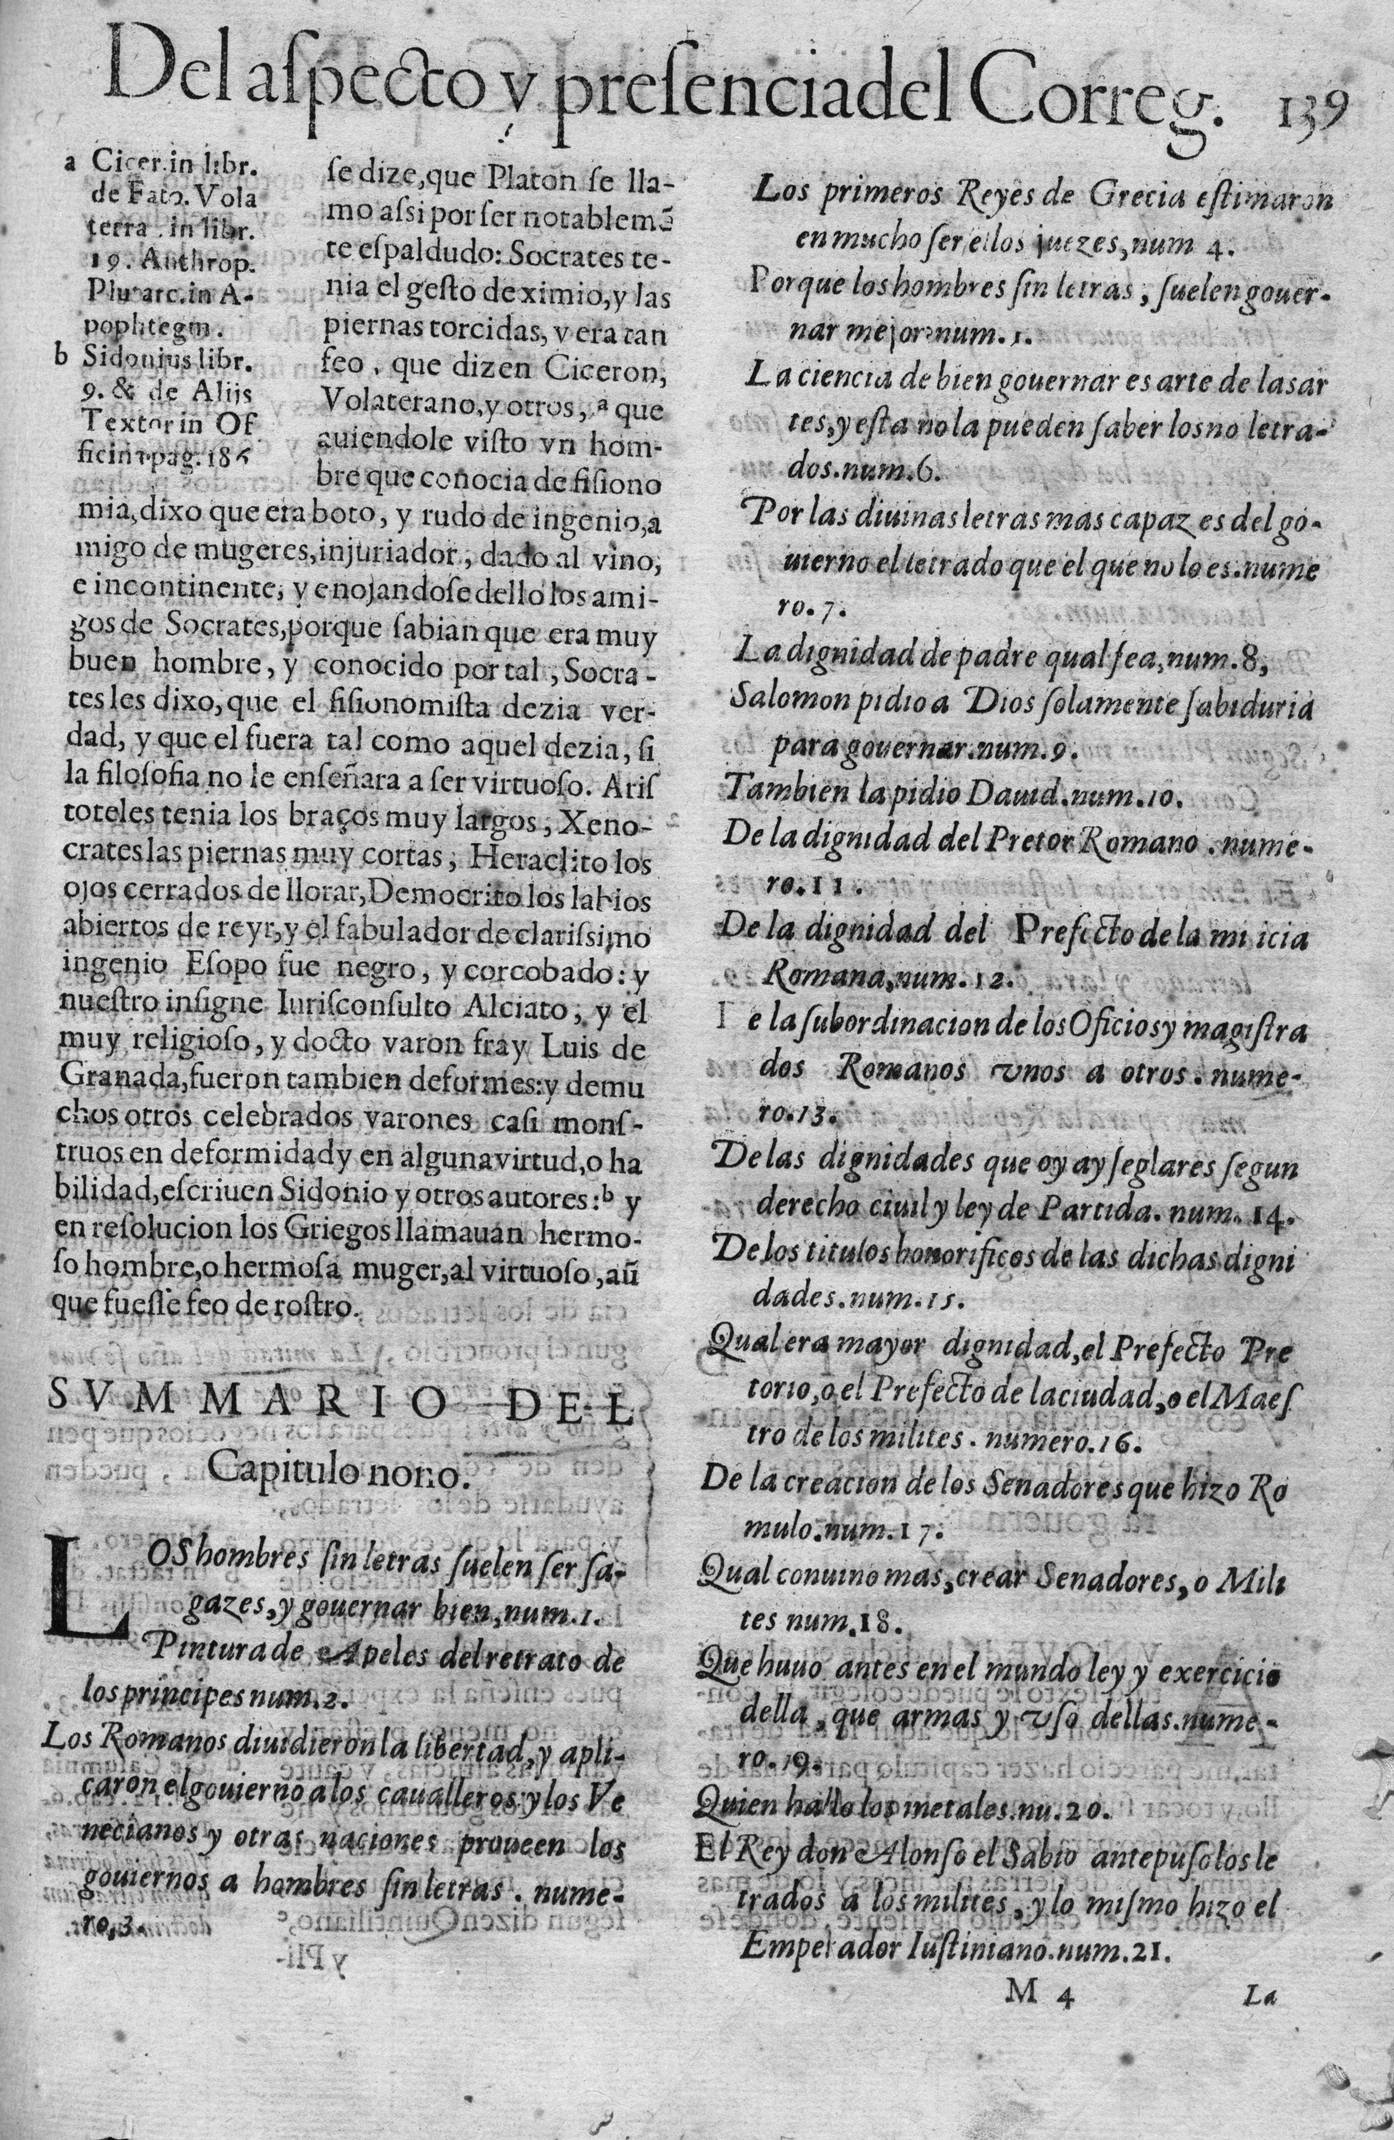 Del aſpecto y preſenciadel Correg. 139
a Cicer.in libr.
de Fato. Vola
terra . in libr.
19. Anthrop.
Plutarc.in A-
pophtegm.
b Sidonius libr.
9. & de Alijs
Textor in Of
ficina pag. 186
ſe dize,que Platon ſe lla-
mo aſsi por ſer notablemẽ
te eſpaldudo: Socrates te-
nia el geſto de ximio,y las
piernas torcidas, y era tan
feo , que dizen Ciceron,
Volaterano,y otros, ª que
auiendole viſto vn hom-
bre que conocia de fiſiono
mia,dixo que era boto, y rudo de ingenio,a
migo de mugeres,injuriador, dado al vino,
e incontinente, y enojandoſe dello los ami-
gos de Socrates,porque ſabian que era muy
buen hombre, y conocido por tal , Socra-
tes les dixo,que el fiſionomiſta dezia ver-
dad, y que el fuera tal como aquel dezia, ſi
la filoſofia no le enſeñara a ſer virtuoſo. Ariſ
toteles tenia los braços muy largos, Xeno-
crates las piernas muy cortas, Heraclito los
ojos cerrados de llorar,Democrito los labios
abiertos de reyr,y el fabulador de clariſsimo
ingenio Eſopo fue negro, y corcobado: y
nueſtro inſigne Iuriſconſulto Alciato, y el
muy religioſo, y docto varon fray Luis de
Granada,fueron tambien deformes:y de mu
chos otros celebrados varones caſi monſ-
truos en deformidad y en alguna virtud,o ha
bilidad,eſcriuen Sidonio y otros autores:ᵇ y
en reſolucion los Griegos llamauan hermo-
ſo hombre,o hermoſa muger,al virtuoſo,aũ
que fueſſe feo de roſtro.
SVMMARIO DEL
Capitulo nono.
LOS hombres ſin letras ſuelen ſer ſa-
gazes,y gouernar bien,num.1.
Pintura de Apeles del retrato de
los principes num.2.
Los Romanos diuidieron la libertad,y apli-
caron el gouierno a los caualleros:y los Ve
necianos y otras naciones proueen los
gouiernos a hombres ſin letras . nume-
ro,3.
Los primeros Reyes de Grecia eſtimaron
en mucho ſer ellos juezes,num 4.
Porque los hombres ſin letras, ſuelen gouer-
nar mejor num.5.
La ciencia de bien gouernar es arte de las ar
tes,y eſta no la pueden ſaber los no letra-
dos.num.6.
Por las diuinas letras mas capaz es del go-
uierno el letrado que el que no lo es.nume
ro.7.
La dignidad de padre qual ſea,num.8,
Salomon pidio a Dios ſolamente ſabiduria
para gouernar.num.9.
Tambien la pidio Dauid.num.10.
De la dignidad del Pretor Romano . nume-
ro.11.
De la dignidad del Prefecto de la milicia
Romana,num.12.
De la ſubordinacion de los Oficios y magiſtra
dos Romanos vnos a otros . nume-
ro.13.
De las dignidades que oy ay ſeglares ſegun
derecho ciuil y ley de Partida. num. 14.
De los titulos honorificos de las dichas digni
dades.num.15.
Qual era mayor dignidad,el Prefecto Pre
torio,o el Prefecto de la ciudad,o el Maeſ
tro de los milites . numero.16.
De la creacion de los Senadores que hizo Ro
mulo.num.17.
Qual conuino mas,crear Senadores, o Mili
tes num.18.
Que huuo antes en el mundo ley y exercicio
della , que armas y vſo dellas.nume-
ro.19.
Quien hallo los metales.nu.20.
El Rey don Alonſo el Sabio antepuſo los le
trados a los milites, y lo miſmo hizo el
Emperador Iuſtiniano.num.21.
M 4 La